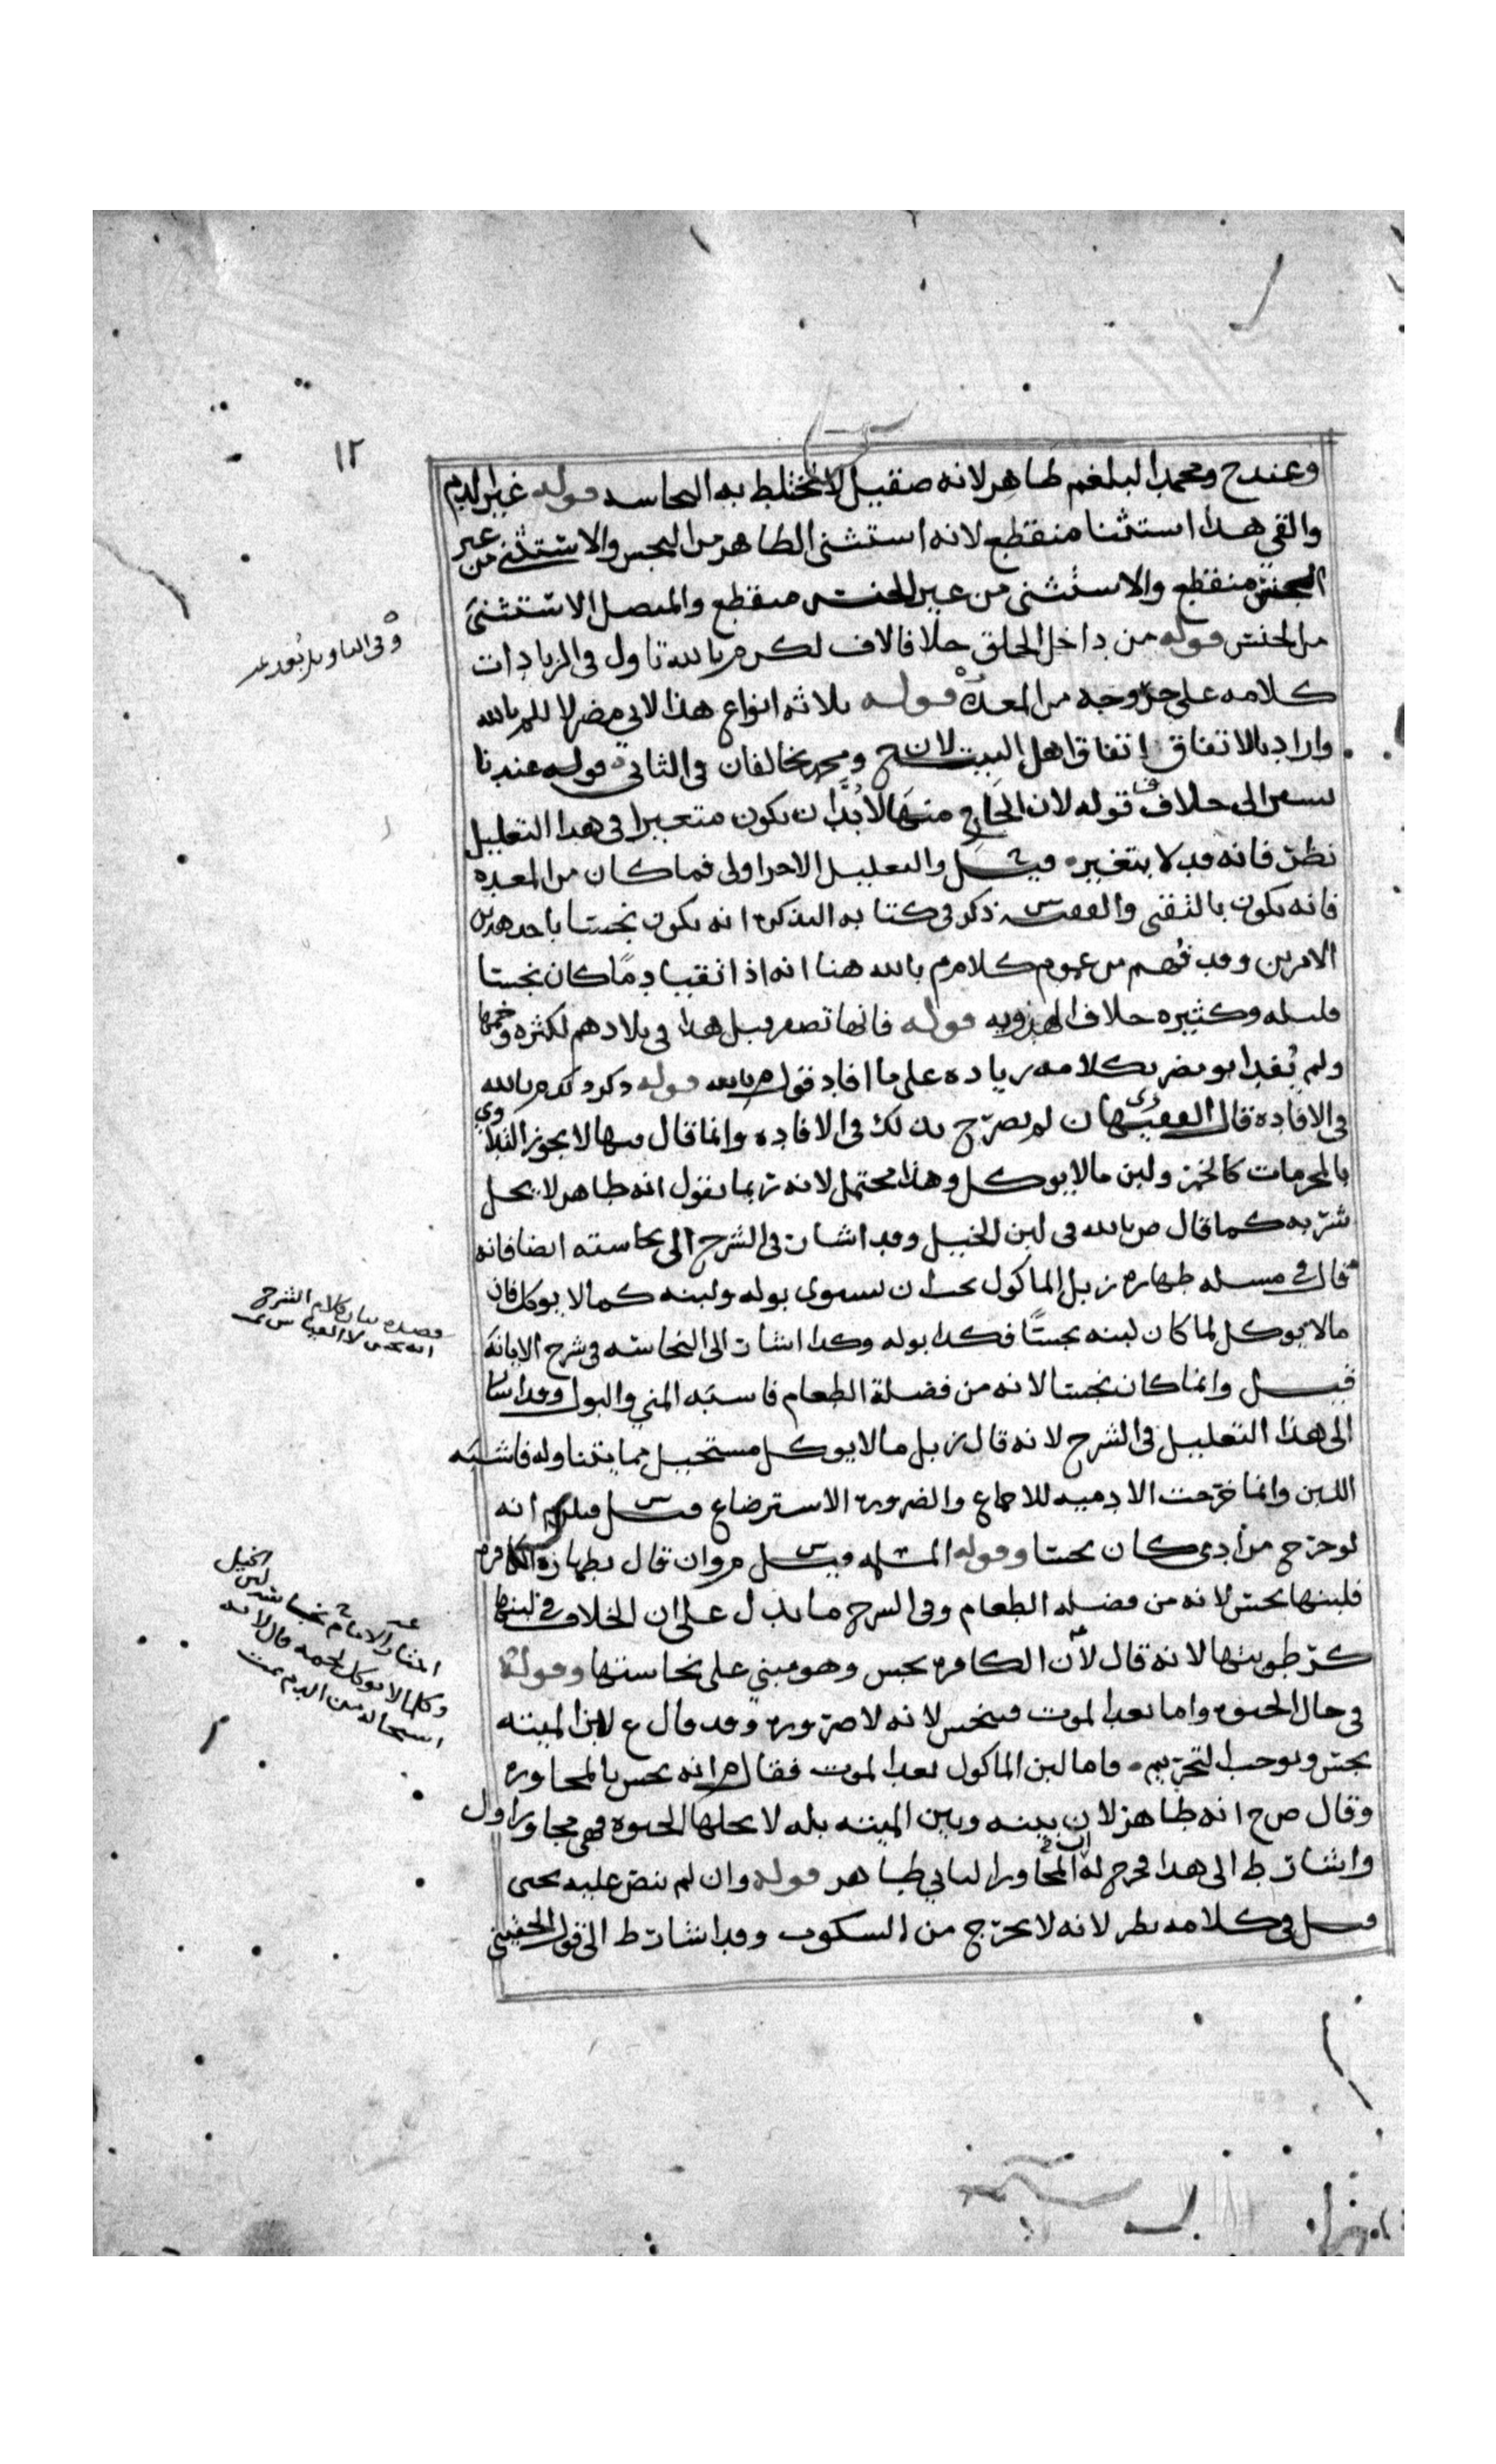 ١٢
وعند ح ومحمد البلغم طاهر لانه صقيل لا تختلط به النجاسه قوله غير الدم
والقي هذا استثنا منقطع لانه استثنى الطاهر من النجس والاستثنى من غير
الجنس منقطع والاستثنى من غير الجنس منقطع والمتصل الاستثنى
من الجنس قوله من داخل الحلق خلافا لاف لكن م بالله تاول في الزيادات
كلامه على خروجه من المعدة قوله ثلاثه انواع هذا لابي مضر لا للم بالله
واراد بالاتفاق اتفاق اهل البيت لان ح ومحمد يخالفان في الثاني قوله عندنا
يشير الى خلاف قوله لان الخارج منها لا بدَّ ان يكون متغيرا في هذا التعليل
نظر فانه قد لا يتغير قيل والتعليل الاخر اولى فما كان من المعده
فانه يكون بالتقي والفقيه س ذكر في كتابه التذكره انه يكون نجسا باحد هذين
الامرين وقد فُهم من عموم كلام م بالله هنا انه اذا تقيا دمًا كان نجسا
قليله وكثيره خلاف الهدويه قوله فانها تصفر قيل هذا في بلادهم لكثره وخمها
ولم يُفد ابو مضر بكلامه زياده على ما افاد قول م بالله قوله ذكر ذلك م بالله
في الافاده قال الفقيه ى ان لم يصرّح بذلك في الافاده وانما قال فيها لا يجوز التداوي
بالمحرمات كالخمر ولبن ما لا يوكل وهذا محتمل لانه ربما يقول انه طاهر لا يحل
شربه كما قال ص بالله في لبن الخيل وقد اشار في الشرح الى نجاسته ايضا فانه
قال في مسله طهاره زبل الماكول يجب ان يستوى بوله ولبنه كما لا يوكل فان
ما لا يوكل لما كان لبنه نجسًا فكذا بوله وكذا اشار الى النجاسه في شرح الابانه
قيل وانما كان نجسا لانه من فضلة الطعام فاشبه المني والبول وقد اشار
الى هذا التعليل في الشرح لانه قال زبل ما لا يوكل مستحيل مما يتناوله فاشبه
اللبن وانما خرجت الادميه للاجماع والضروره الاسترضاع قيل س فيلزم انه
لو خرج من ادمى كان نجسا وقوله المسلمه قيل س م وان قال بطهاره الكافره
فلبنها نجس لانه من فضله الطعام وفي الشرح ما يدل على ان الخلاف في لبنها
كرطوبتها لانه قال لان الكافره نجس وهو مبني على نجاستها وقوله
في حال الحيوه واما بعد الموت فينجس لانه لا ضروره وقد قال ع لبن الميته
نجس ويوجب التحريم واما لبن الماكول بعد الموت فقال م انه نجس بالمجاوره
وقال ص ح انه طاهر لان بينه وبين الميته بله لا يحلها الحيوه فهي مجاور اول
واشار ط الى هذا فخرج له ان المجاور الثاني طاهر قوله وان لم ينص عليه يحيى
قيل في كلامه نظر لانه لا يخرج من السكوت وقد اشار ط الى قول الحقيني
وفي التاويل بُعد
قصده بيان كلام الشرح
انه نجس لا القياس
اختار الامام نجاسه لبن الخيل
وكلما لا يوكل لحمه قال لانه
استحاله من الدم تمت